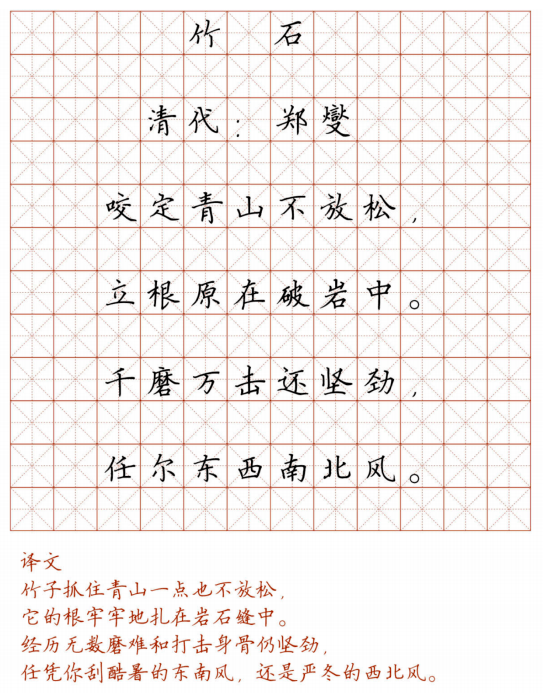 竹 石
清代：郑燮
咬定青山不放松，
立根原在破岩中。
千磨万击还坚劲，
任尔东西南北风。
译文
竹子抓住青山一点也不放松，
它的根牢牢地扎在岩石缝中。
经历无数磨难和打击身骨仍坚劲，
任凭你刮酷暑的东南风，还是严冬的西北风。